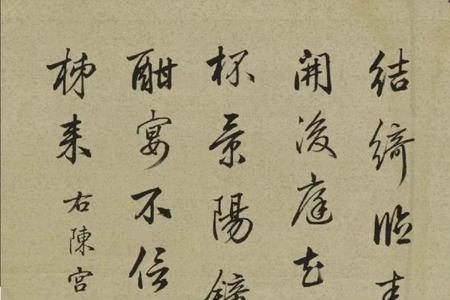 結綺臨
開後庭花
杯景陽
酣宴不信
梯来右陳宮